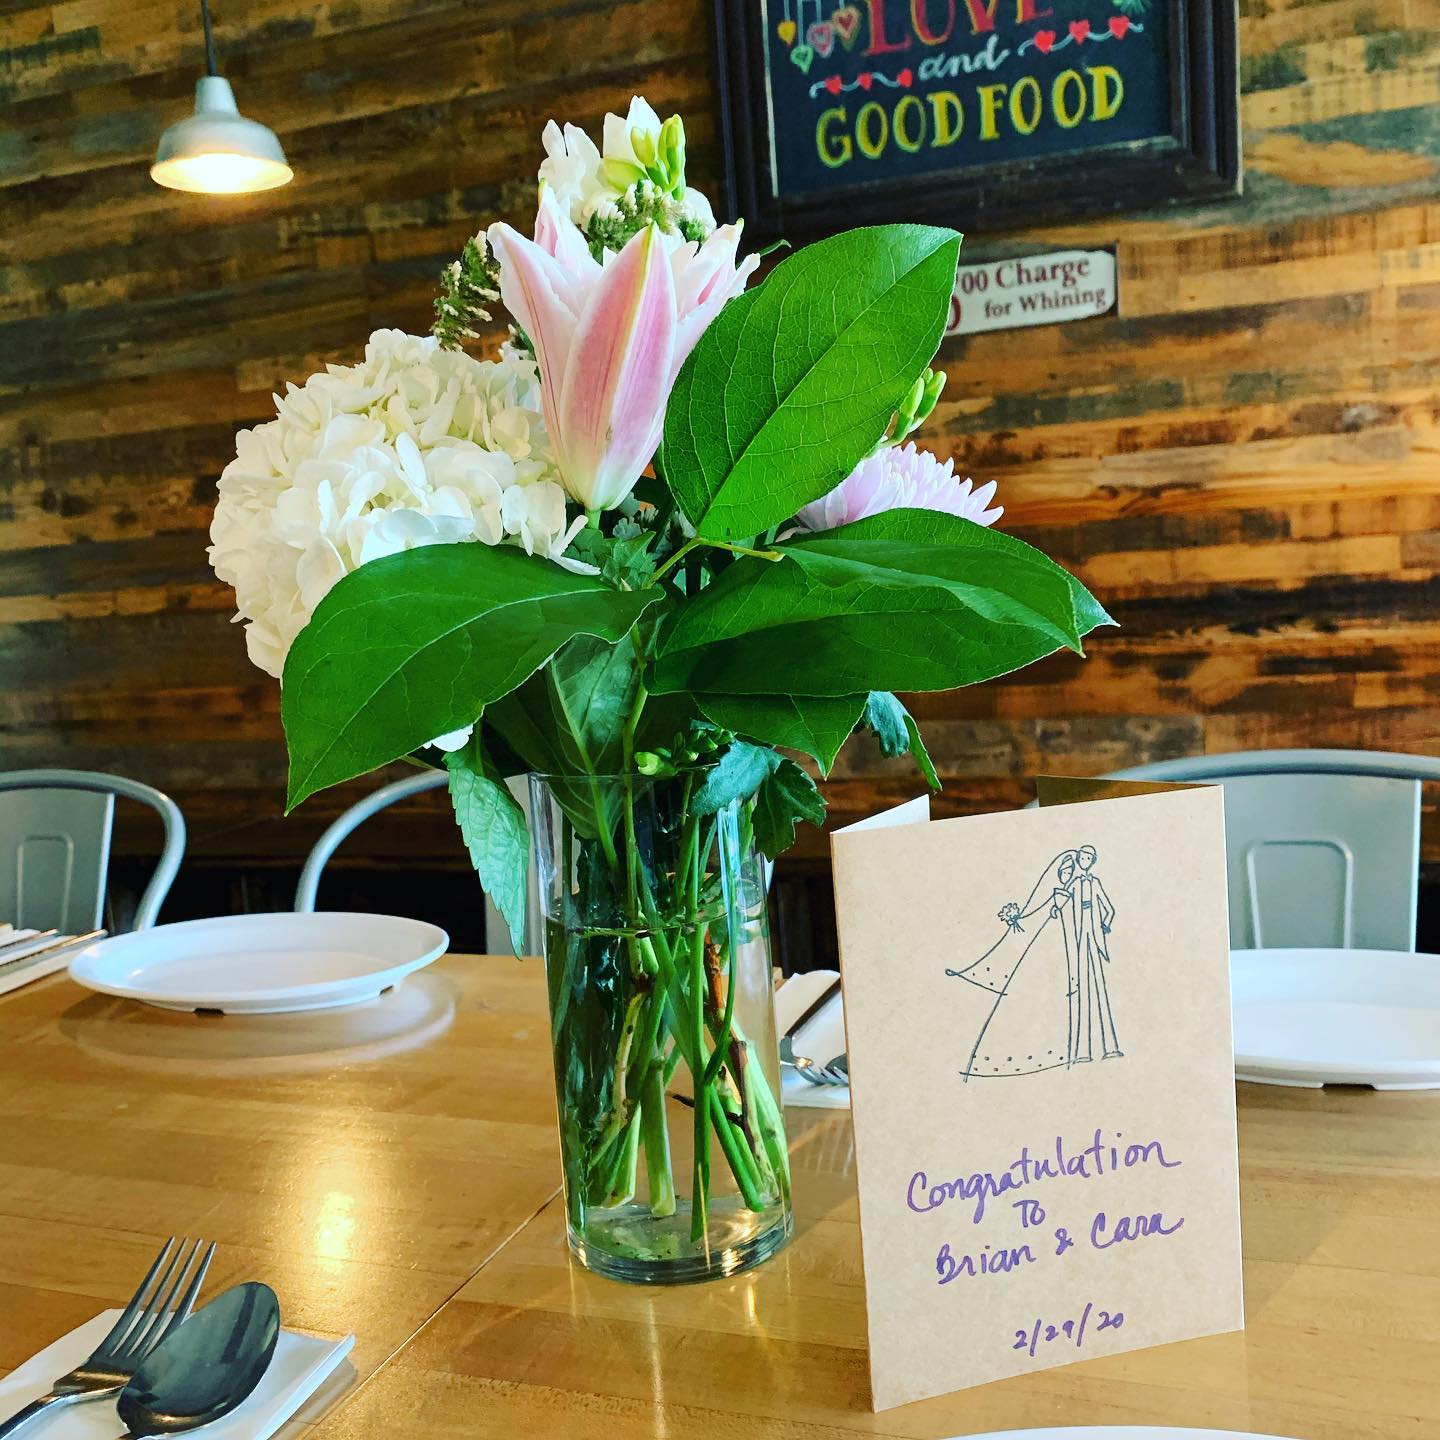 LOVE
and
GOOD FOOD
00 Charge
for Whining
Congratulation
To
Brian & Cara
2/29/20